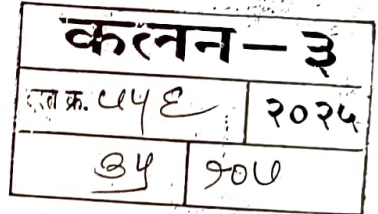 कलन - ३
दस्त क्र. ५५६ २०२५
३५ १०७